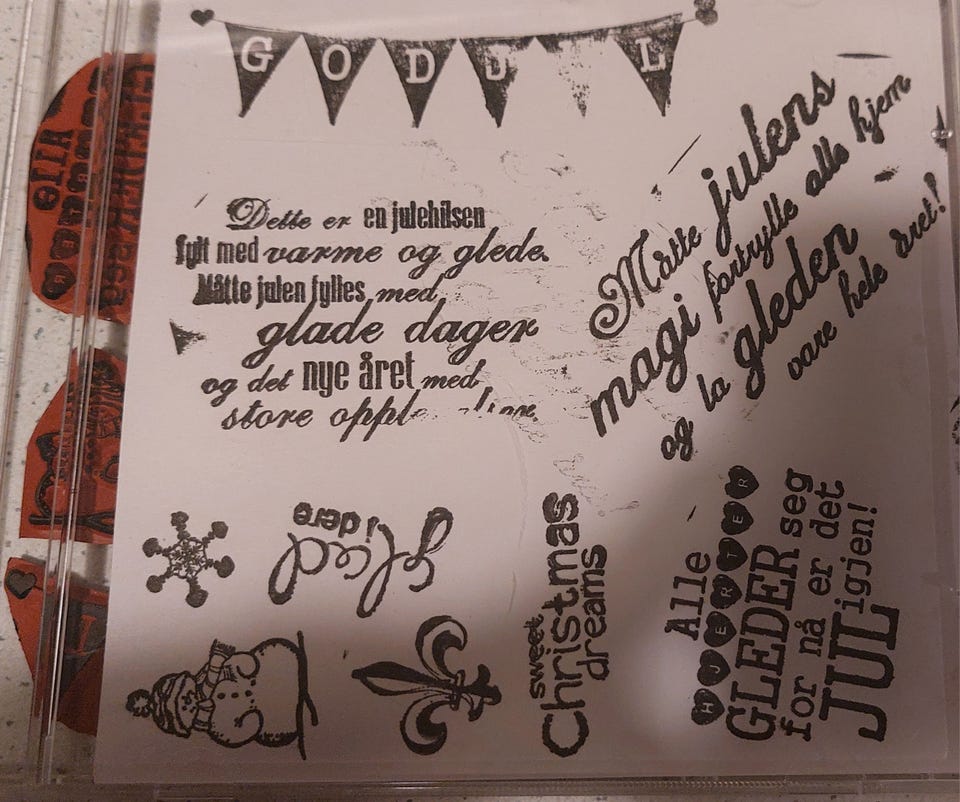 GOD JUL
Dette er en julehilsen
fylt med varme og glede.
Måtte julen fylles med
glade dager
og det nye året med
store
Måtte julens
magi fortrylle alle hjem
og la gleden
vare hele året!
Gled
i dere
sweet
Christmas
dreams
Alle
HJERTER
GLEDER seg
for nå er det
JUL igjen!